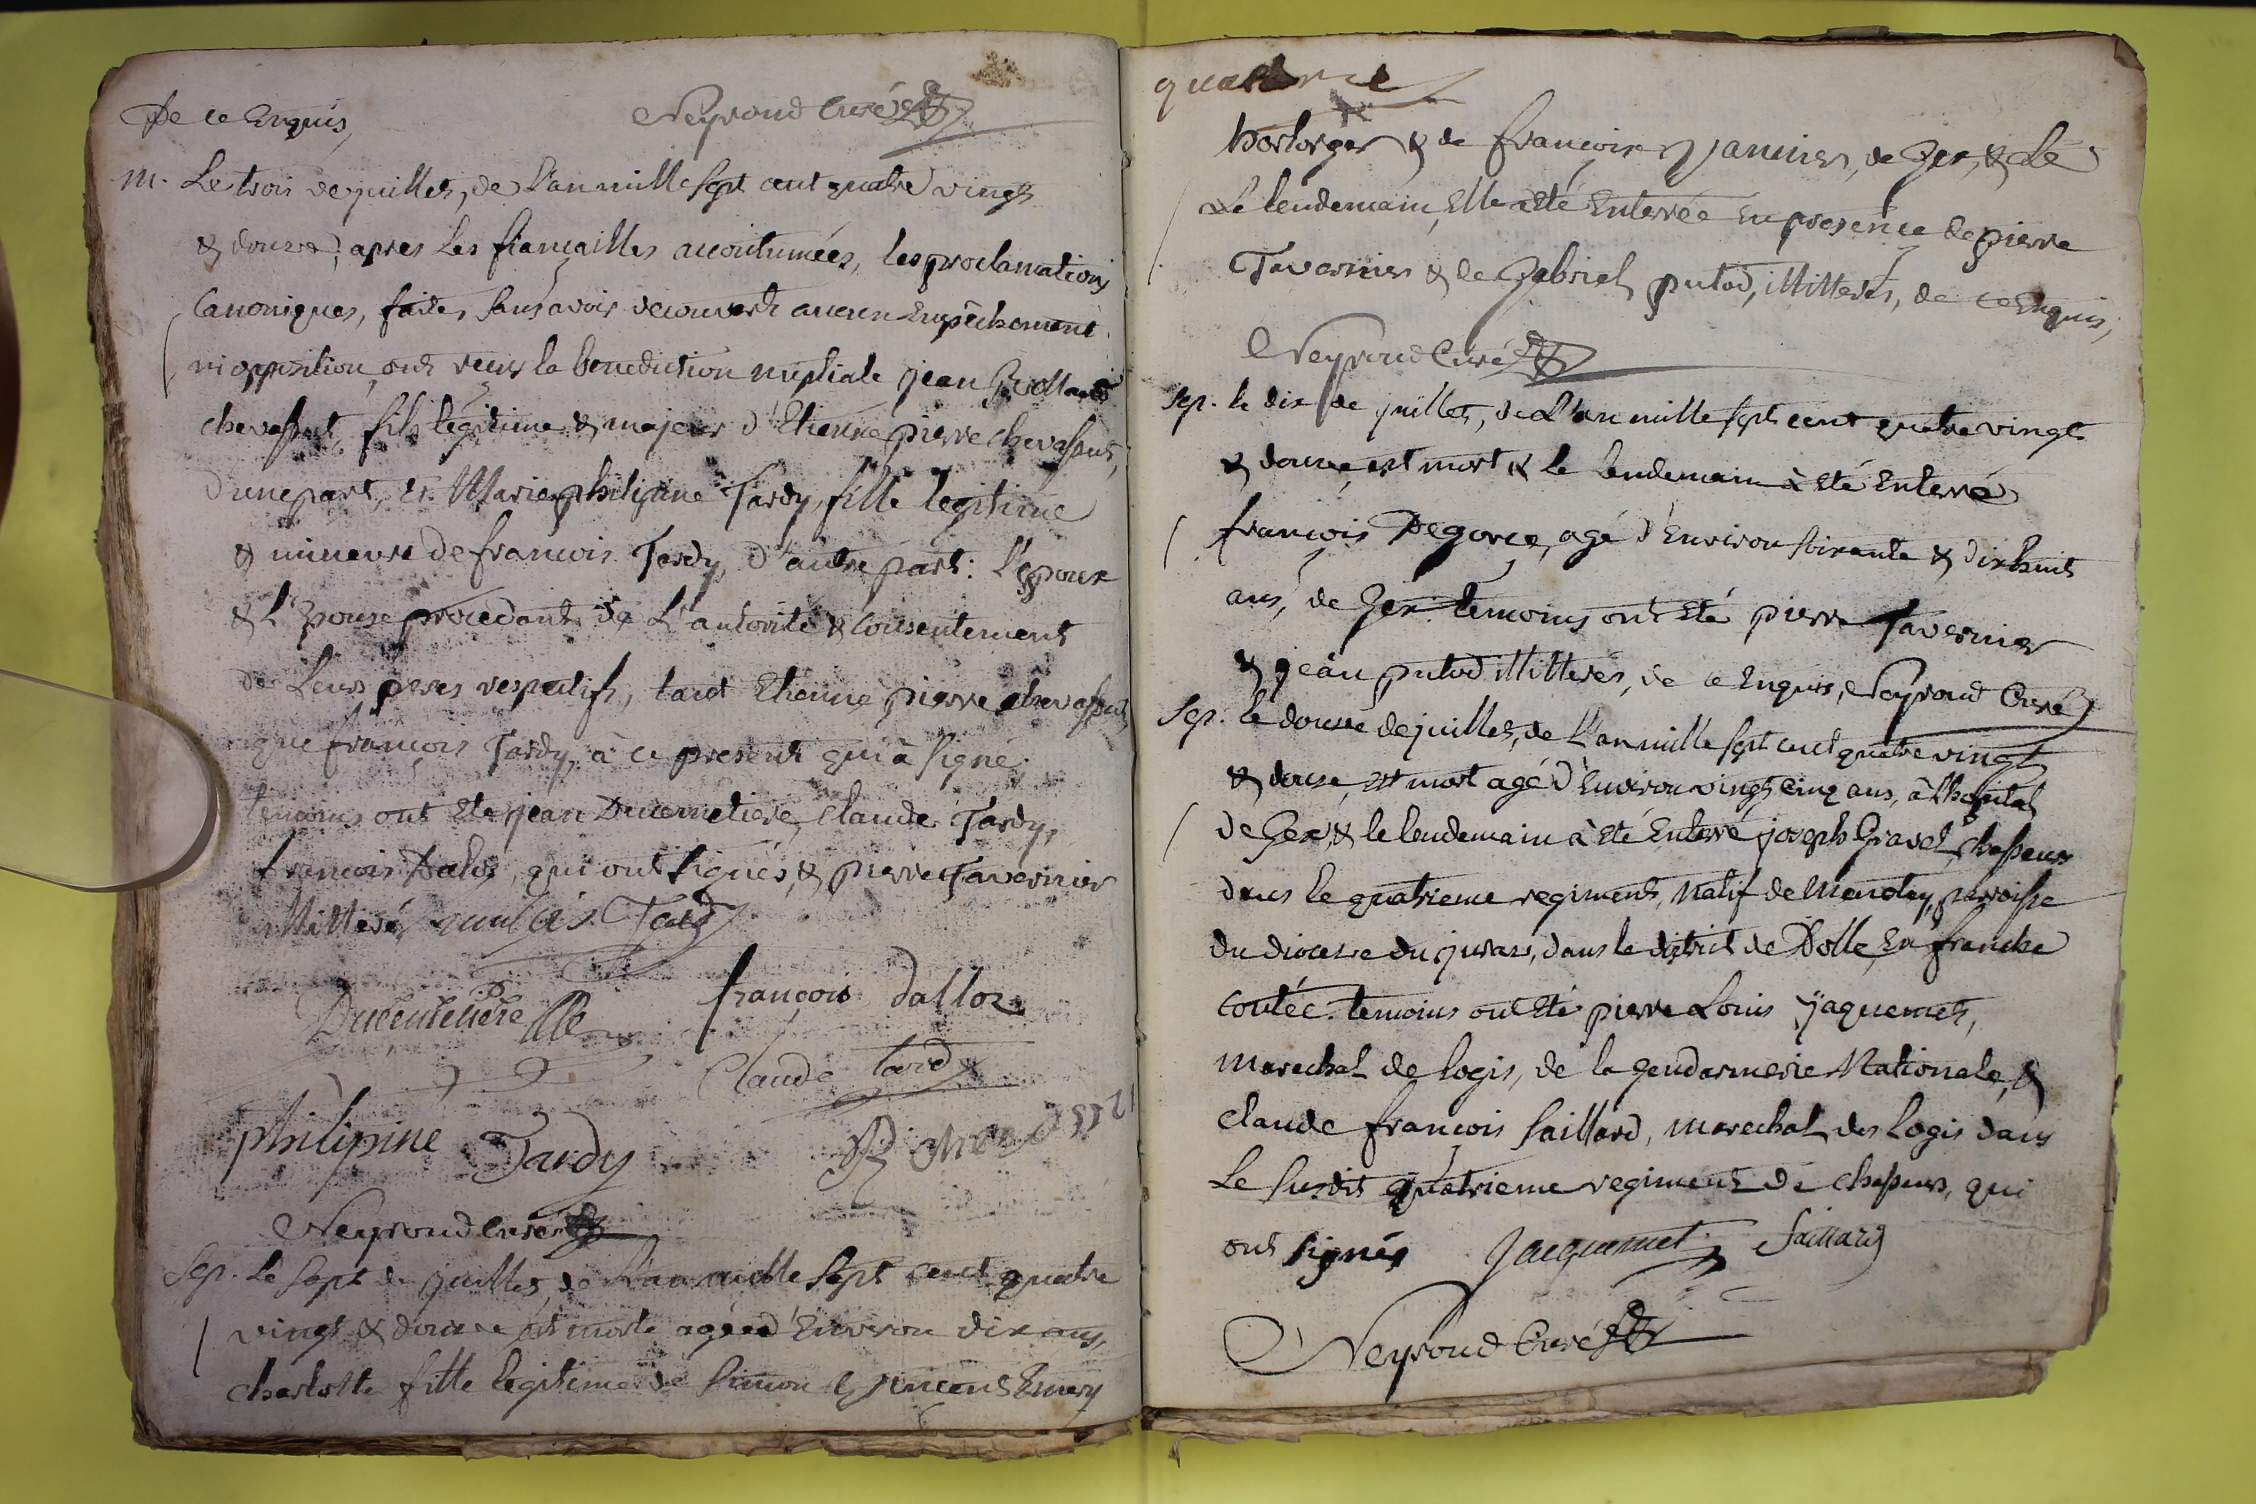 De ce Enquis, Neyroud Curé
M. Le trois de juillet, de L'an mille sept cent quatre vingt
& douze, apres les fiançailles accoutumées, les proclamations
Canoniques, faites, sans avoir decouvert aucun Empêchement
ni opposition, ont reçus la benediction nuptiale jean
chevassus, fils légitime & majeur d'Etienne pierre chevassus,
d'une part, et Marie philipine Tardy, fille legitime
& mineure de françois Tardy, d'autre part: L'époux
& L'Epouse procedants de L'autorité & consentement
de Leurs peres respectifs, tant Etienne pierre chevassus
que françois Tardy, à ce present qui à signé,
temoins ont Eté jean Ducimetiere, Claude Tardy,
francois Daloz, qui ont signés, & pierre Tavernier
illitteré, Tardy
Ducimetiere françois dalloz
Claude tardy
philipine Tardy
Neyroud Curé
Sep. Le sept de juillet, de L'an mille sept cent quatre
vingt & douze est morte agée d'Environ dix ans,
charlotte fille legitime de Simon Emery
quatorze
horloger & de françoise janinet, de Gex, & Le
Le lendemain, Elle a Eté Enterrée En presence de pierre
Tavernier & de Gabriel putod, illitterés, de ce Enquis,
Neyroud Curé
Sep. le dix de juillet, de L'an mille sept cent quatre vingt
& douze, est mort & le lendemain à Eté Enterré
françois Degorce, agé d'Environ soixante & dix huit
ans, de Gex: temoins ont Eté pierre Tavernier
& jean putod illitterés, de ce Enquis, Neyroud Curé
Sep. le douze de juillet, de L'an mille sept cent quatre vingt
& douze, est mort agé d'Environ vingt cinq ans, à l'hopital
de Gex, & le lendemain à Eté Enterré joseph Gravel, chasseur
dans le quatrieme regiment, Natif de Menotey, parroisse
du diocese du juras, dans le district de Dolle, En franche
contée. temoins ont Eté pierre Louis jaquemet,
marechal de logis, de la gendarmerie Nationale, &
Claude françois Saillard, marechal des Logis dans
Le susdit quatrieme regiment de chasseurs, qui
ont signés Jacquemet Saillard
Neyroud Curé